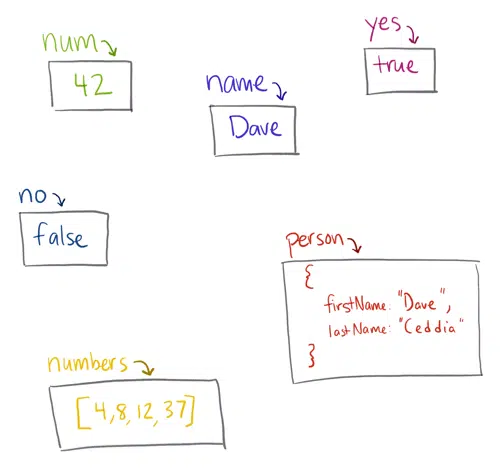 num
42
name
Dave
yes
true
no
false
person
{
firstName: "Dave",
lastName: "Ceddia"
}
numbers
[4,8,12,37]